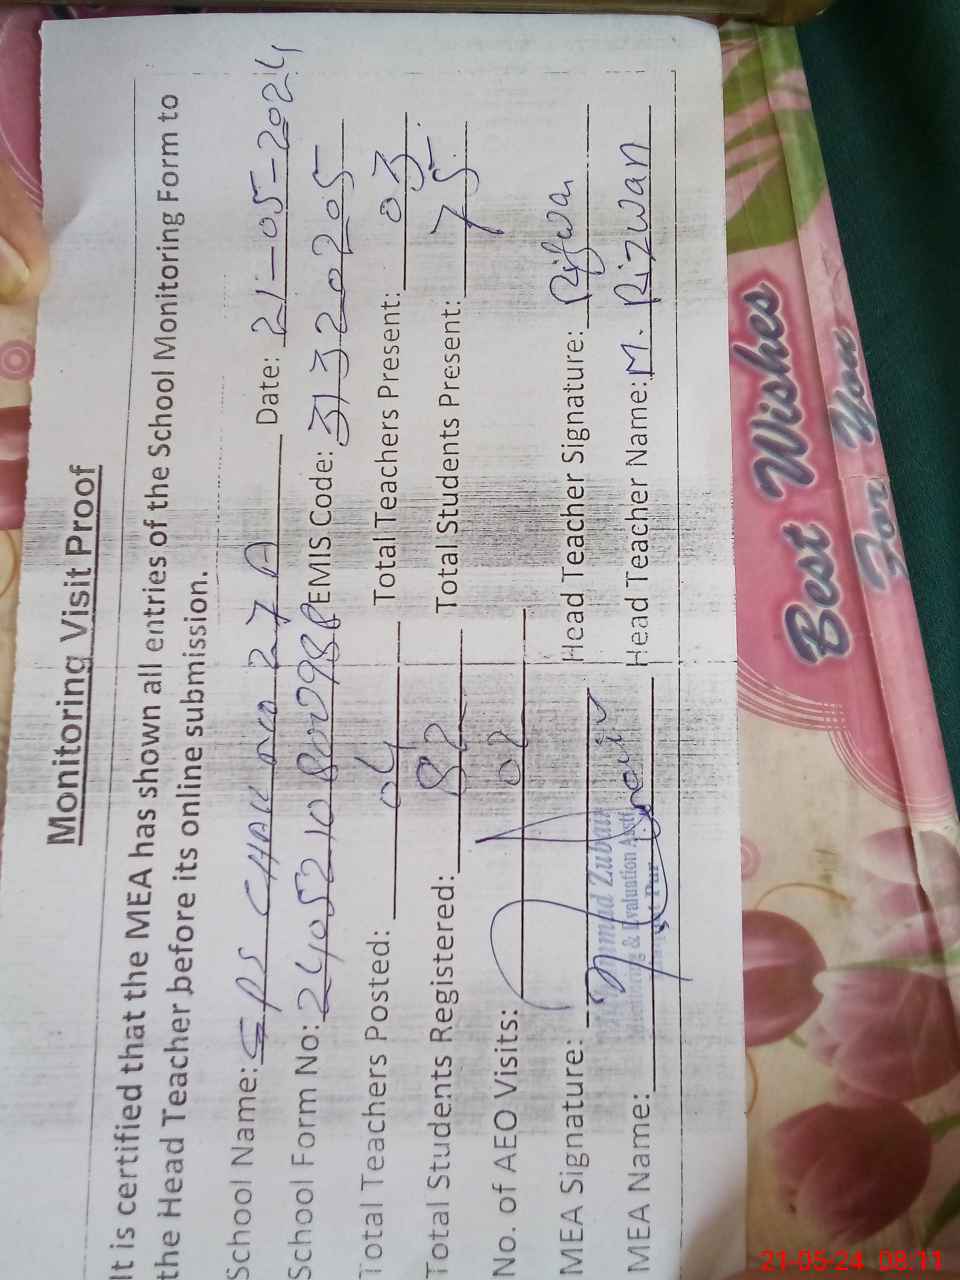 Monitoring Visit Proof
It is certified that the MEA has shown all entries of the School Monitoring Form to
the Head Teacher before its online submission.
School Name: GPS CHAK NO 27 A Date: 21-05-2024
School Form No: EMIS Code: 31320205
Total Teachers Posted: 04 Total Teachers Present: 03
Total Students Registered: 82 Total Students Present: 75
No. of AEO Visits: 02
MEA Signature: Head Teacher Signature: Rizwan
MEA Name: Head Teacher Name: M. Rizwan
Zubair
Monitoring & Evaluation Asstt
Pur
Best Wishes
For You
21-05-24 08:11